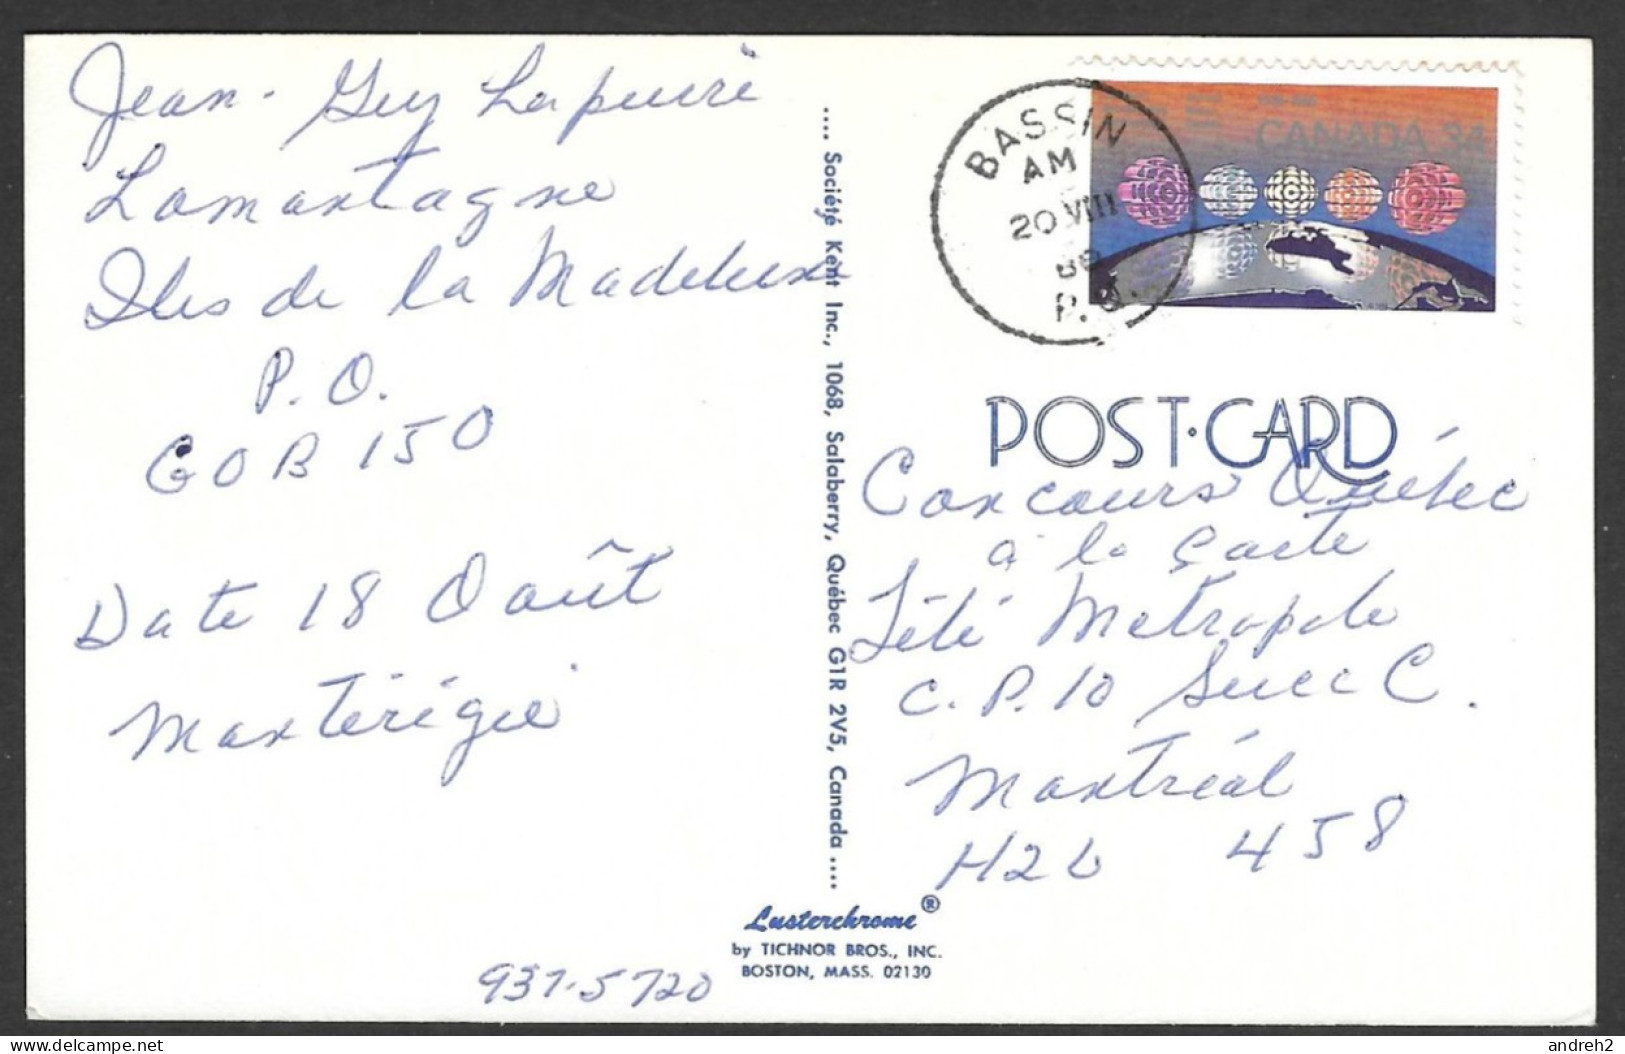 Jean-Guy Lapierre
Lamontagne
Iles de la Madeleine
P.O.
GOB 150
Date 18 Août
Montérégie
937-5720
.... Société Kent Inc., 1068, Salaberry, Québec G1R 2V5, Canada ....
Lusterchrome®
by TICHNOR BROS., INC.
BOSTON, MASS. 02130
BASSIN
AM
20 VIII
86
P.Q.
CANADA 34
POST·CARD
Concours Québec
à la Carte
Télé Métropole
C.P. 10 Succ C.
Montréal
H2L 458
andreh2
delcampe.net